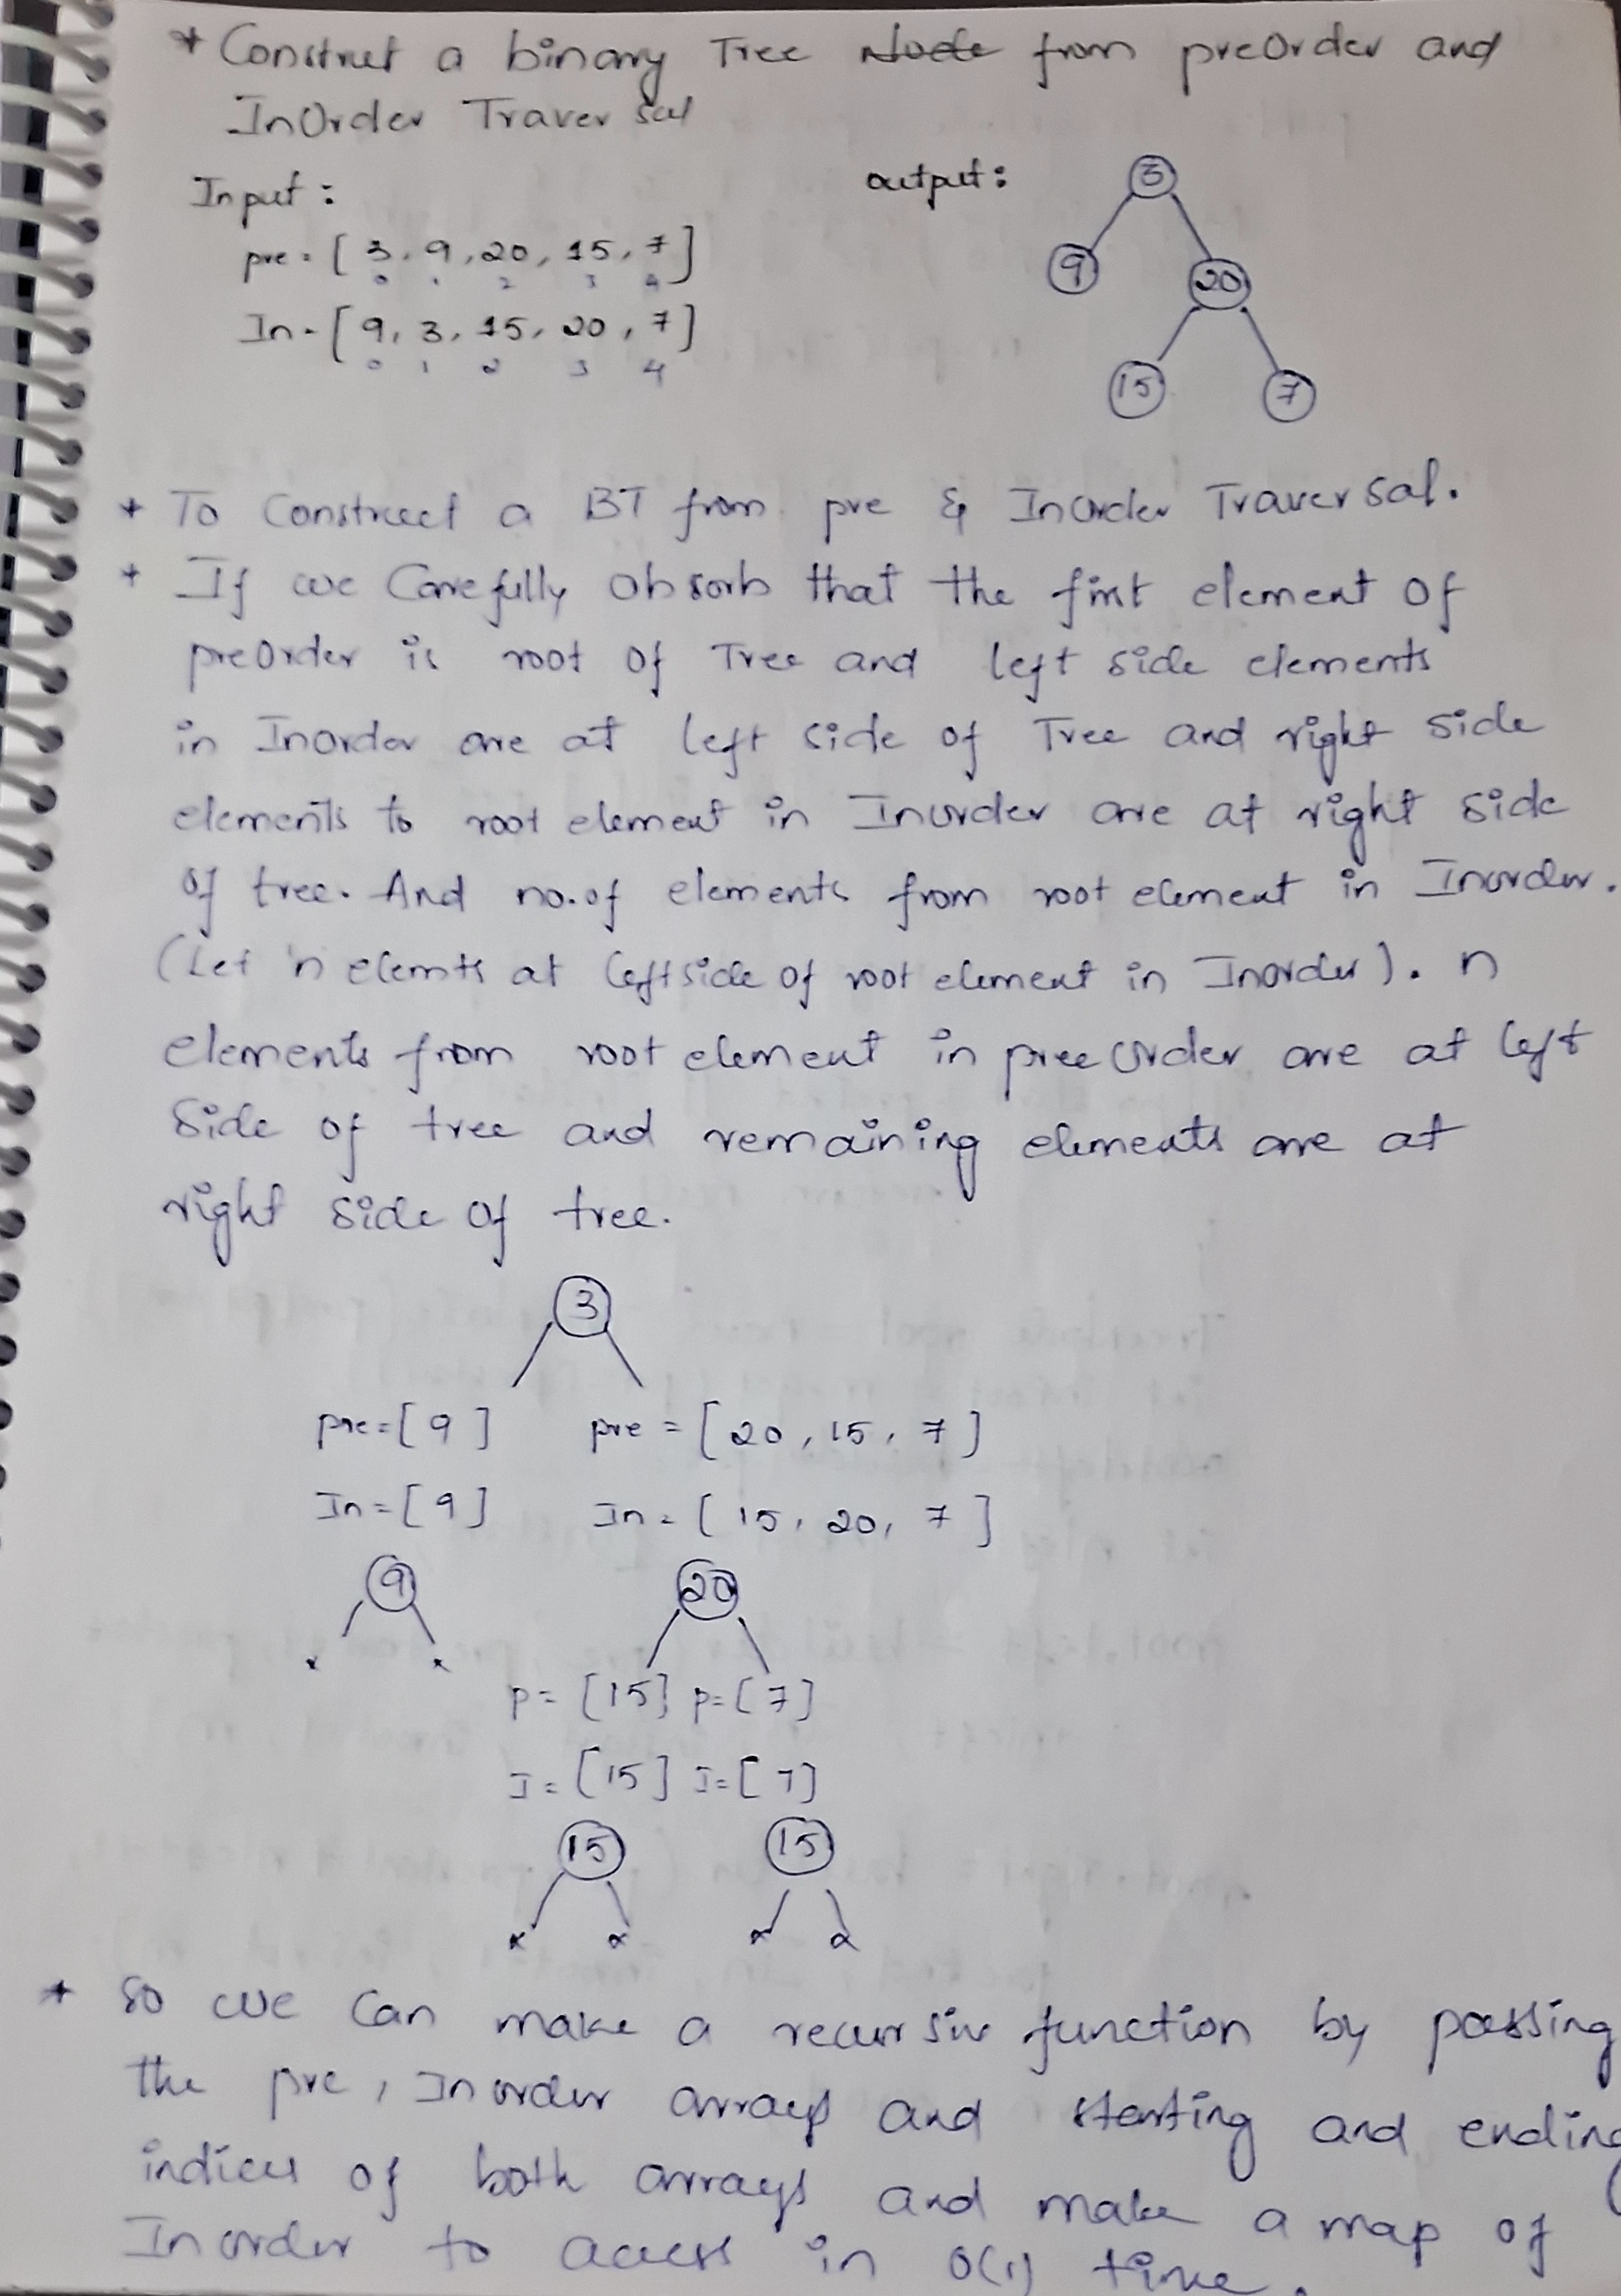 * Construct a binary Tree Node from preOrder and
InOrder Traversal
Input :
output :
pre = [ 3, 9, 20, 15, 7 ]
0 1 2 3 4
In = [ 9, 3, 15, 20, 7 ]
0 1 2 3 4
3
9
20
15
7
* To Construct a BT from pre & Inorder Traversal.
* If we Carefully Obsorb that the first element of
preOrder is root of Tree and left side elements
in Inorder are at left side of Tree and right side
elements to root element in Inorder are at right side
of tree. And no. of elements from root element in Inorder.
(Let 'n elemts at left side of root element in Inorder). n
elements from root element in preeorder are at left
side of tree and remaining elements are at
right side of tree.
3
pre = [ 9 ] pre = [ 20, 15, 7 ]
In = [ 9 ] In = [ 15, 20, 7 ]
9 20
x x
p = [15] p = [7]
I = [15] I = [7]
15 15
x x x x
* So we can make a recursive function by passing
the pre, Inorder arrays and starting and ending
indices of both arrays and make a map of
Inorder to access in O(1) time.